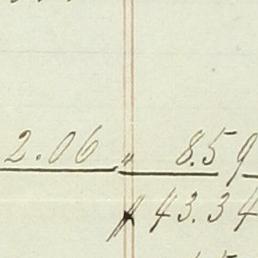 2.06 " 8.59
$ 43.34